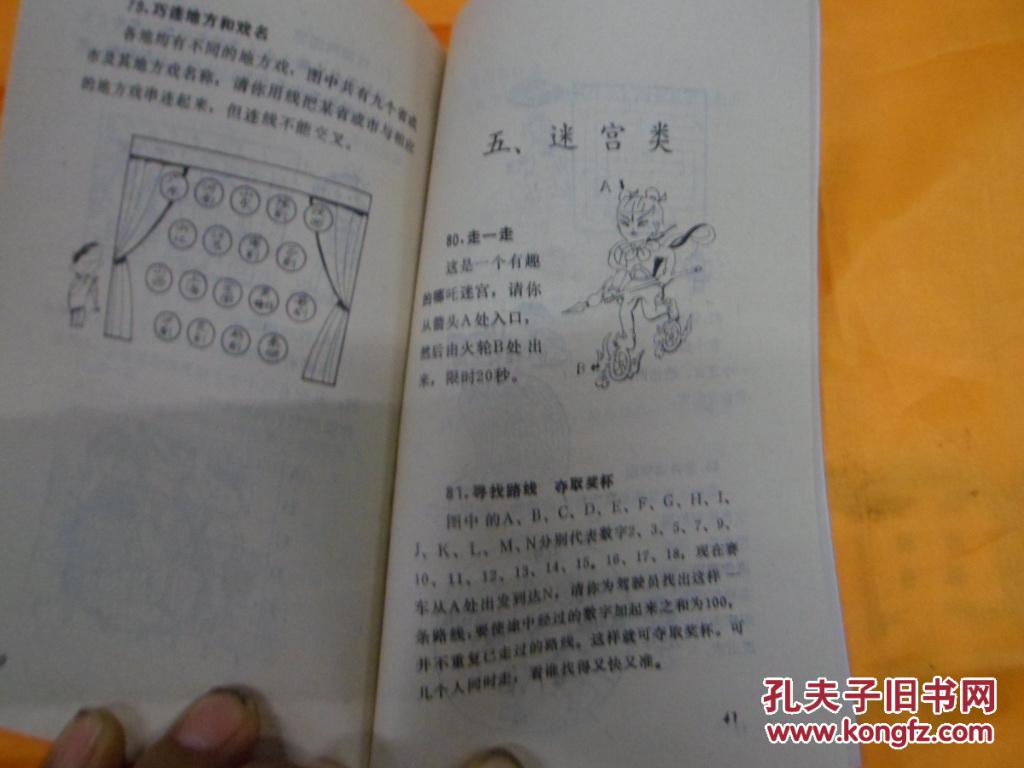 79.巧连地方和戏名
各地均有不同的地方戏，图中共有九个省或
市及其地方戏名称，请你用线把某省或市与相应
的地方戏串连起来，但连线不能交叉。
五、迷宫类
A
80.走一走
这是一个有趣
的哪吒迷宫，请你
从箭头A处入口，
然后由火轮B处出
来，限时20秒。
B
81.寻找路线 夺取奖杯
图中的A、B、C、D、E、F、G、H、I、
J、K、L、M、N分别代表数字2、3、5、7、9、
10、11、12、13、14、15、16、17、18。现在赛
车从A处出发到达N，请你为驾驶员找出这样一
条路线，要使途中经过的数字加起来之和为100，
并不重复已走过的路线。这样就可夺取奖杯。可
几个人同时走，看谁找得又快又准。
41
孔夫子旧书网
www.kongfz.com